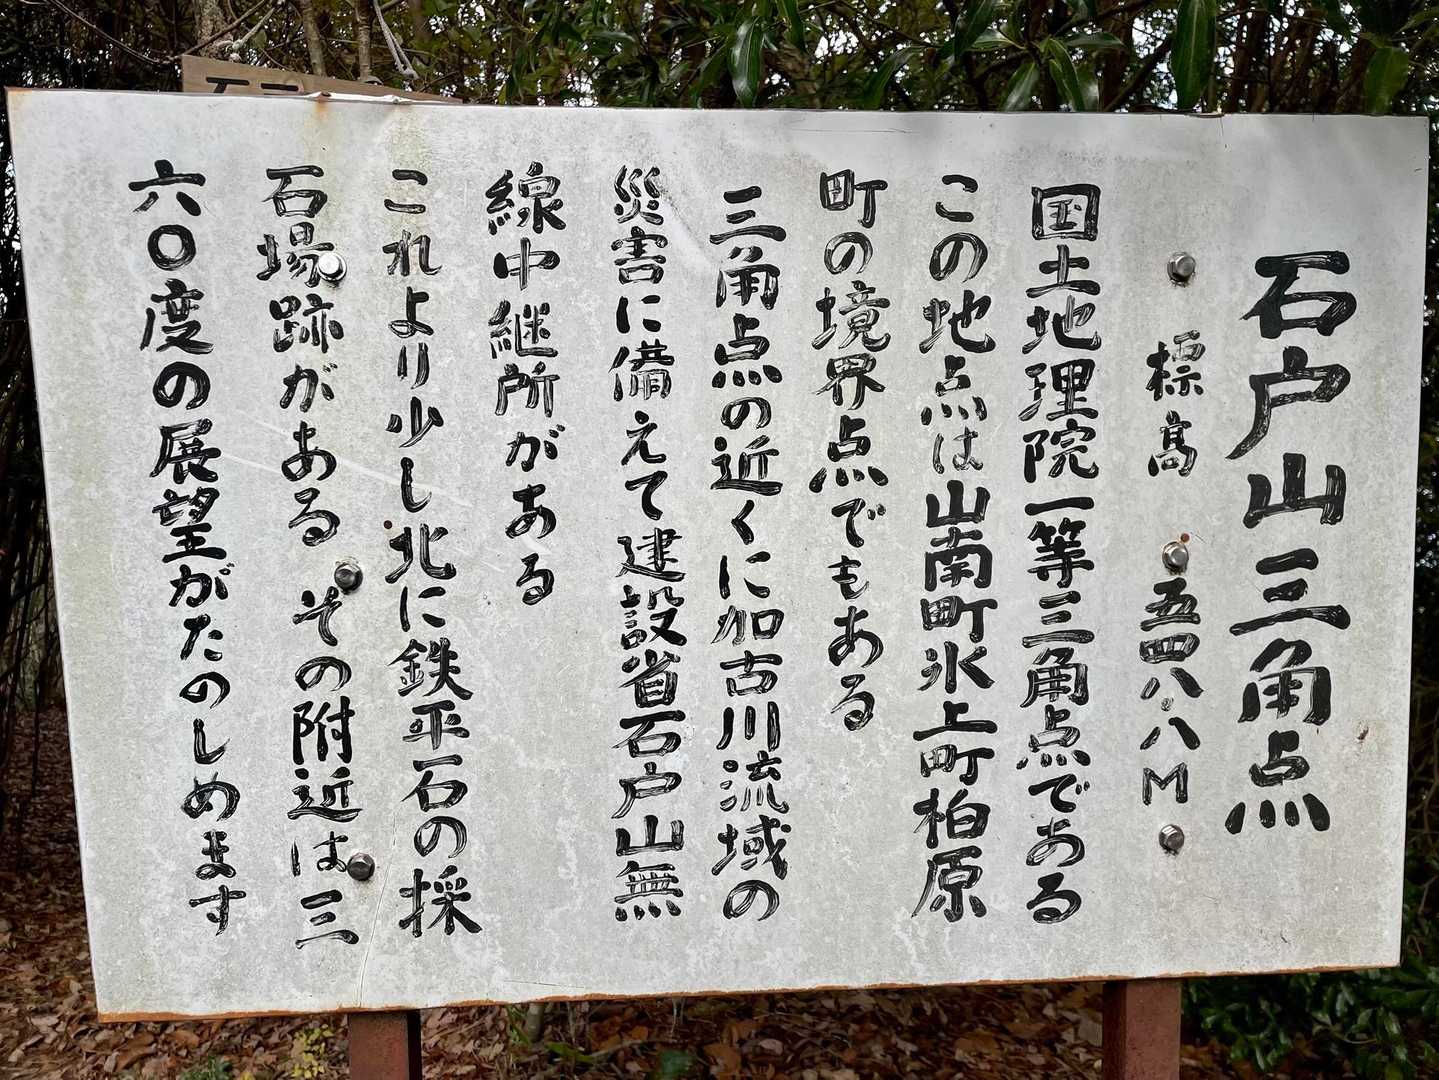 石戸山三角点
標高 五四八.八M
国土地理院一等三角点である
この地点は山南町氷上町柏原
町の境界点でもある
三角点の近くに加古川流域の
災害に備えて建設省石戸山無
線中継所がある
これより少し北に鉄平石の採
石場跡がある その附近は三
六〇度の展望がたのしめます